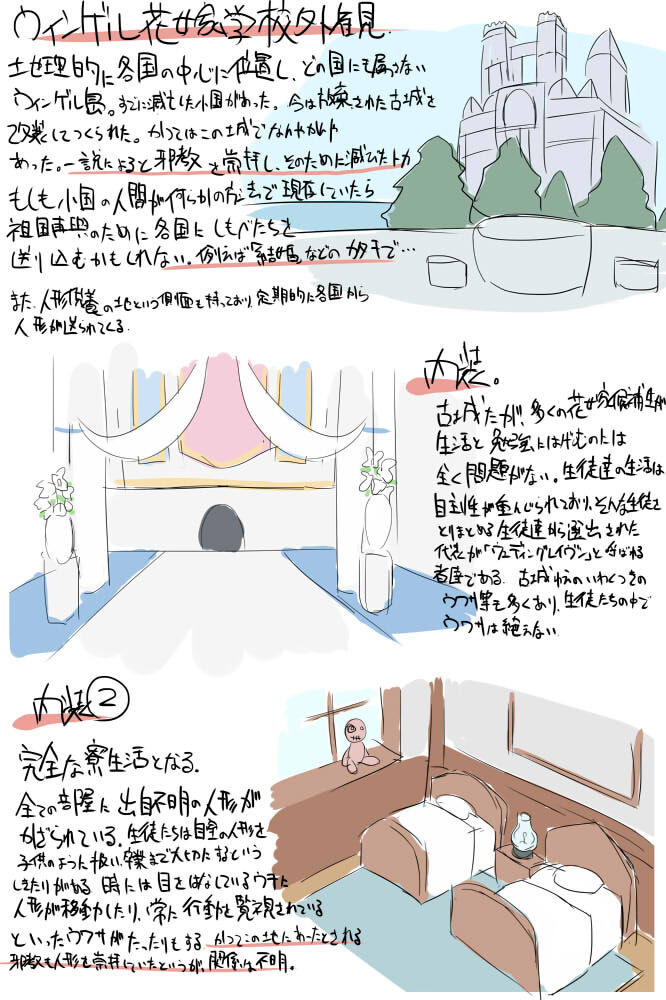 ウィンゲル花嫁学校外観
地理的に各国の中心に位置し、どの国にも属さない
ウィンゲル島。すでに滅亡した小国があった。今は放棄された古城を
改装してつくられた。かつてはこの土地でなんやかんや
あった。一説によると邪教を崇拝し、そのために滅びたとか
もしも小国の人間が何らかの方法で現存していたら
祖国再興のために各国にしもべたちを
送り込むかもしれない。例えば「結婚」などのカタチで…
また、人形供養の地という側面も持っており、定期的に各国から
人形が送られてくる。
内装。
古城だが、多くの花嫁候補生が
生活と勉強にはげむのには
全く問題がない。生徒達の生活は
自主性が重んじられており、そんな生徒を
とりまとめる生徒達から選出された
代表が「ウェディングレイヴン」と呼ばれる
者達である。古城ゆえのいわくつきの
ウワサ等も多くあり、生徒たちの中で
ウワサは絶えない
内装②
完全な寮生活となる。
全ての部屋に出自不明の人形が
かざられている。生徒たちは自室の人形を
子供のように扱い、卒業まで大切にするという
しきたりがある 時には目をはなしているウチに
人形が移動したり、常に行動を監視されている
といったウワサがたったりもする かつてこの地にあったとされる
邪教も人形を崇拝していたというが、関係は不明。